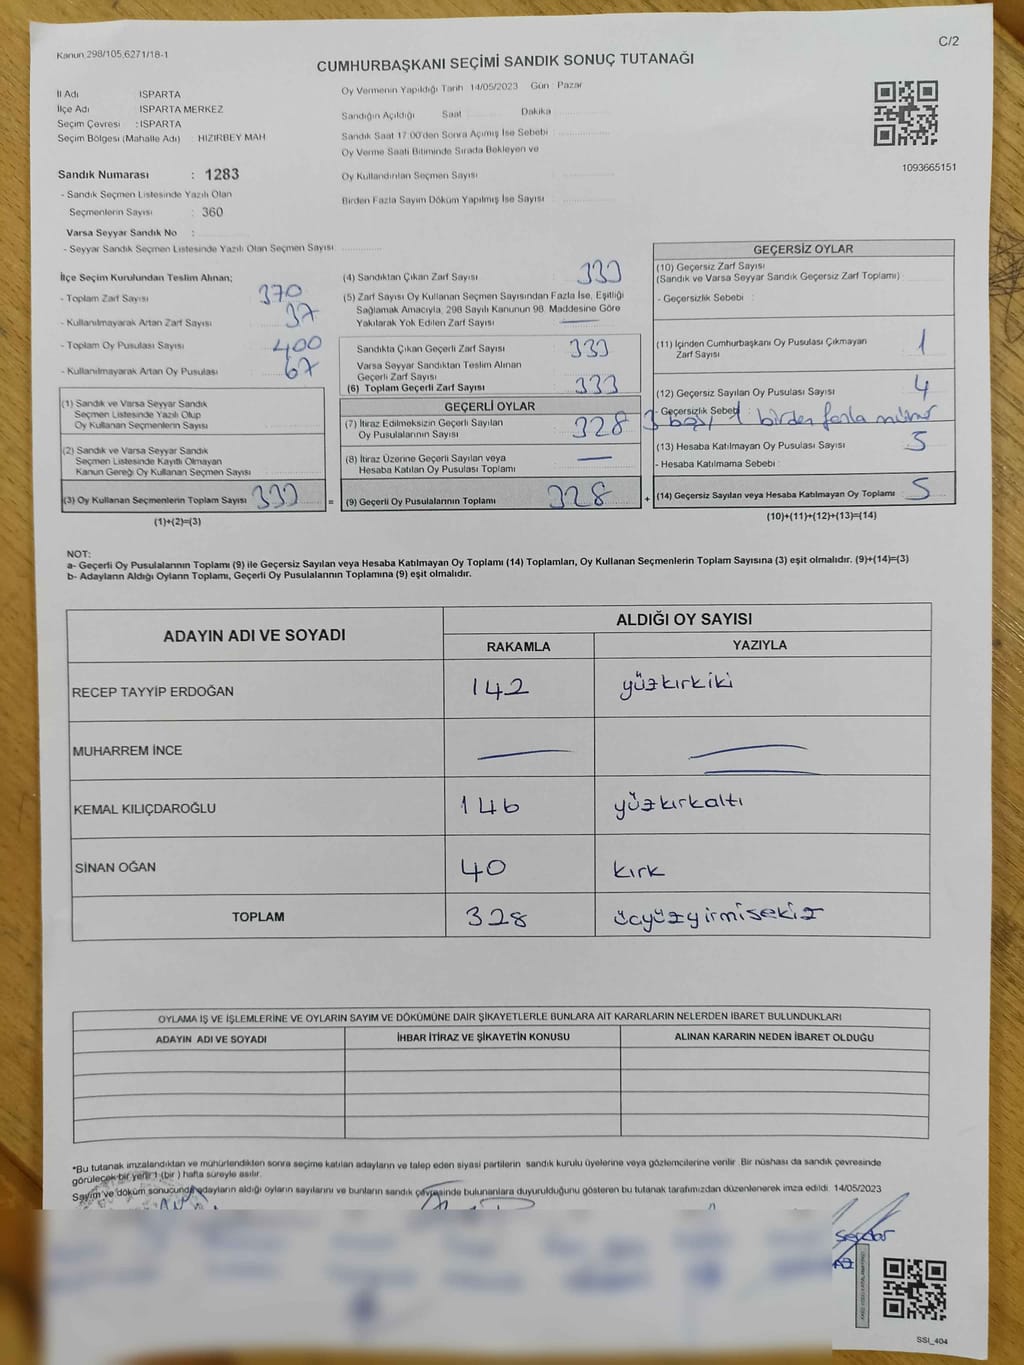 Kanun 298/105,6271/18-1
C/2
CUMHURBAŞKANI SEÇİMİ SANDIK SONUÇ TUTANAĞI
İl Adı ISPARTA
İlçe Adı ISPARTA MERKEZ
Seçim Çevresi : ISPARTA
Seçim Bölgesi (Mahalle Adı) : HIZIRBEY MAH
Oy Vermenin Yapıldığı Tarih 14/05/2023 Gün : Pazar
Sandığın Açıldığı Saat Dakika
Sandık Saat 17:00'den Sonra Açımış İse Sebebi
Oy Verme Saati Bitiminde Sırada Bekleyen ve
Oy Kullandırılan Seçmen Sayısı
Birden Fazla Sayım Döküm Yapılmış İse Sayısı
1093665151
Sandık Numarası : 1283
- Sandık Seçmen Listesinde Yazılı Olan
Seçmenlerin Sayısı : 360
Varsa Seyyar Sandık No :
- Seyyar Sandık Seçmen Listesinde Yazılı Olan Seçmen Sayısı
İlçe Seçim Kurulundan Teslim Alınan;
- Toplam Zarf Sayısı 370
- Kullanılmayarak Artan Zarf Sayısı 37
- Toplam Oy Pusulası Sayısı 400
- Kullanılmayarak Artan Oy Pusulası 67
(1) Sandık ve Varsa Seyyar Sandık
Seçmen Listesinde Yazılı Olup
Oy Kullanan Seçmenlerin Sayısı
(2) Sandık ve Varsa Seyyar Sandık
Seçmen Listesinde Kayıtlı Olmayan
Kanun Gereği Oy Kullanan Seçmen Sayısı
(3) Oy Kullanan Seçmenlerin Toplam Sayısı 333 =
(1)+(2)=(3)
(4) Sandıktan Çıkan Zarf Sayısı 333
(5) Zarf Sayısı Oy Kullanan Seçmen Sayısından Fazla İse, Eşitliği
Sağlamak Amacıyla, 298 Sayılı Kanunun 98. Maddesine Göre
Yakılarak Yok Edilen Zarf Sayısı
Sandıkta Çıkan Geçerli Zarf Sayısı 333
Varsa Seyyar Sandıktan Teslim Alınan
Geçerli Zarf Sayısı
(6) Toplam Geçerli Zarf Sayısı 333
GEÇERLİ OYLAR
(7) İtiraz Edilmeksizin Geçerli Sayılan
Oy Pusulalarının Sayısı 328
(8) İtiraz Üzerine Geçerli Sayılan veya
Hesaba Katılan Oy Pusulası Toplamı
(9) Geçerli Oy Pusulalarının Toplamı 328 +
GEÇERSİZ OYLAR
(10) Geçersiz Zarf Sayısı
(Sandık ve Varsa Seyyar Sandık Geçersiz Zarf Toplamı)
- Geçersizlik Sebebi :
(11) İçinden Cumhurbaşkanı Oy Pusulası Çıkmayan
Zarf Sayısı 1
(12) Geçersiz Sayılan Oy Pusulası Sayısı 4
- Geçersizlik Sebebi 3 boş, 1 birden fazla mühür
(13) Hesaba Katılmayan Oy Pusulası Sayısı 5
- Hesaba Katılmama Sebebi :
(14) Geçersiz Sayılan veya Hesaba Katılmayan Oy Toplamı 5
(10)+(11)+(12)+(13)=(14)
NOT:
a- Geçerli Oy Pusulalarının Toplamı (9) ile Geçersiz Sayılan veya Hesaba Katılmayan Oy Toplamı (14) Toplamları, Oy Kullanan Seçmenlerin Toplam Sayısına (3) eşit olmalıdır. (9)+(14)=(3)
b- Adayların Aldığı Oyların Toplamı, Geçerli Oy Pusulalarının Toplamına (9) eşit olmalıdır.
ADAYIN ADI VE SOYADI
ALDIĞI OY SAYISI
RAKAMLA YAZIYLA
RECEP TAYYİP ERDOĞAN 142 yüzkırkiki
MUHARREM İNCE
KEMAL KILIÇDAROĞLU 146 yüzkırkaltı
SİNAN OĞAN 40 kırk
TOPLAM 328 üçyüzyirmisekiz
OYLAMA İŞ VE İŞLEMLERİNE VE OYLARIN SAYIM VE DÖKÜMÜNE DAİR ŞİKAYETLERLE BUNLARA AİT KARARLARIN NELERDEN İBARET BULUNDUKLARI
ADAYIN ADI VE SOYADI İHBAR İTİRAZ VE ŞİKAYETİN KONUSU ALINAN KARARIN NEDEN İBARET OLDUĞU
*Bu tutanak imzalandıktan ve mühürlendikten sonra seçime katılan adayların ve talep eden siyasi partilerin sandık kurulu üyelerine veya gözlemcilerine verilir. Bir nüshası da sandık çevresinde
görülecek bir yere 1 (bir) hafta süreyle asılır.
Sayım ve döküm sonucunda adayların aldığı oyların sayılarını ve bunların sandık çevresinde bulunanlara duyurulduğunu gösteren bu tutanak tarafımızdan düzenlenerek imza edildi. 14/05/2023
Serdar
SSI_404